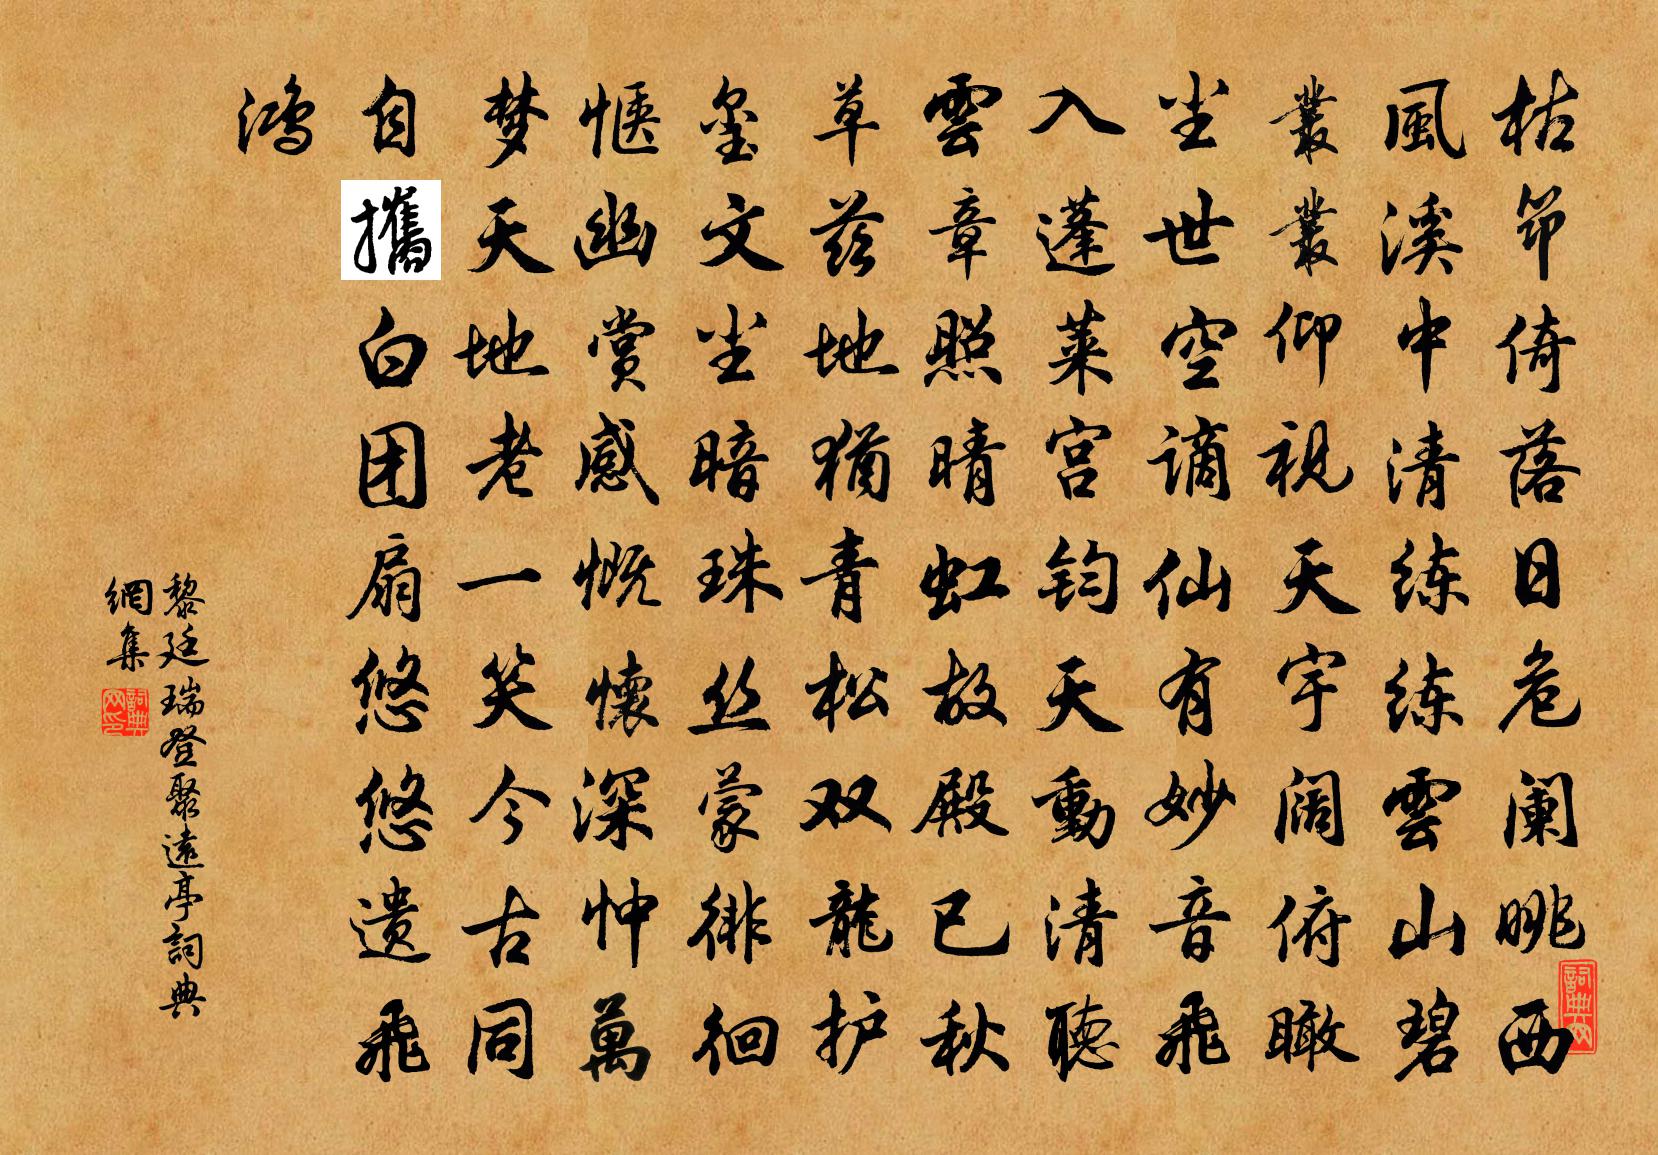 枯笻倚落日危阑眺西
風溪中清练练雲山碧
叢叢仰视天宇阔俯瞰
尘世空谪仙有妙音飛
入蓬莱宫钧天動清聽
雲章照晴虹故殿已秋
草兹地犹青松双龍护
玺文尘暗珠丝蒙徘徊
惬幽赏感慨懷深忡萬
梦天地老一笑今古同
自攜白团扇悠悠遗飛
鸿
黎廷瑞登聚遠亭詞典
網集
詞典网
詞典网印